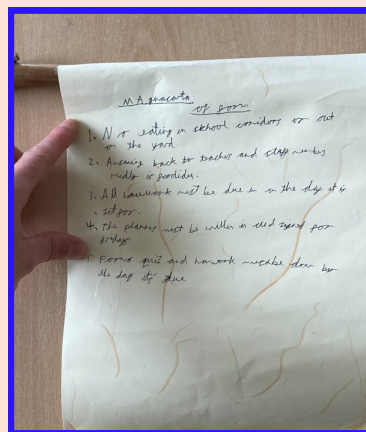 MAgnacarta
of form
1. No eating in school coridors or out
on the yard.
2. Answering back to teaches and staff members
is
3. All homework must be due in on the day it is
set for.
4. The planner must be in and signed for
friday
5. Forms quiz and homework must be done by
the day it's due